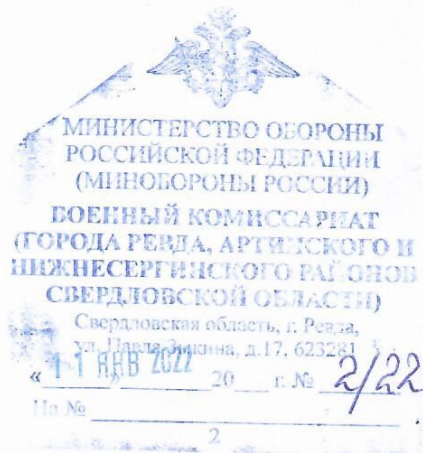 МИНИСТЕРСТВО ОБОРОНЫ
РОССИЙСКОЙ ФЕДЕРАЦИИ
(МИНОБОРОНЫ РОССИИ)
ВОЕННЫЙ КОМИССАРИАТ
(ГОРОДА РЕВДА, АРТИНСКОГО И
НИЖНЕСЕРГИНСКОГО РАЙОНОВ
СВЕРДЛОВСКОЙ ОБЛАСТИ)
Свердловская область, г. Ревда,
ул. Павла Зыкина, д.17, 623281
« 11 ЯНВ 2022 20 г. № 2/22
На №
2